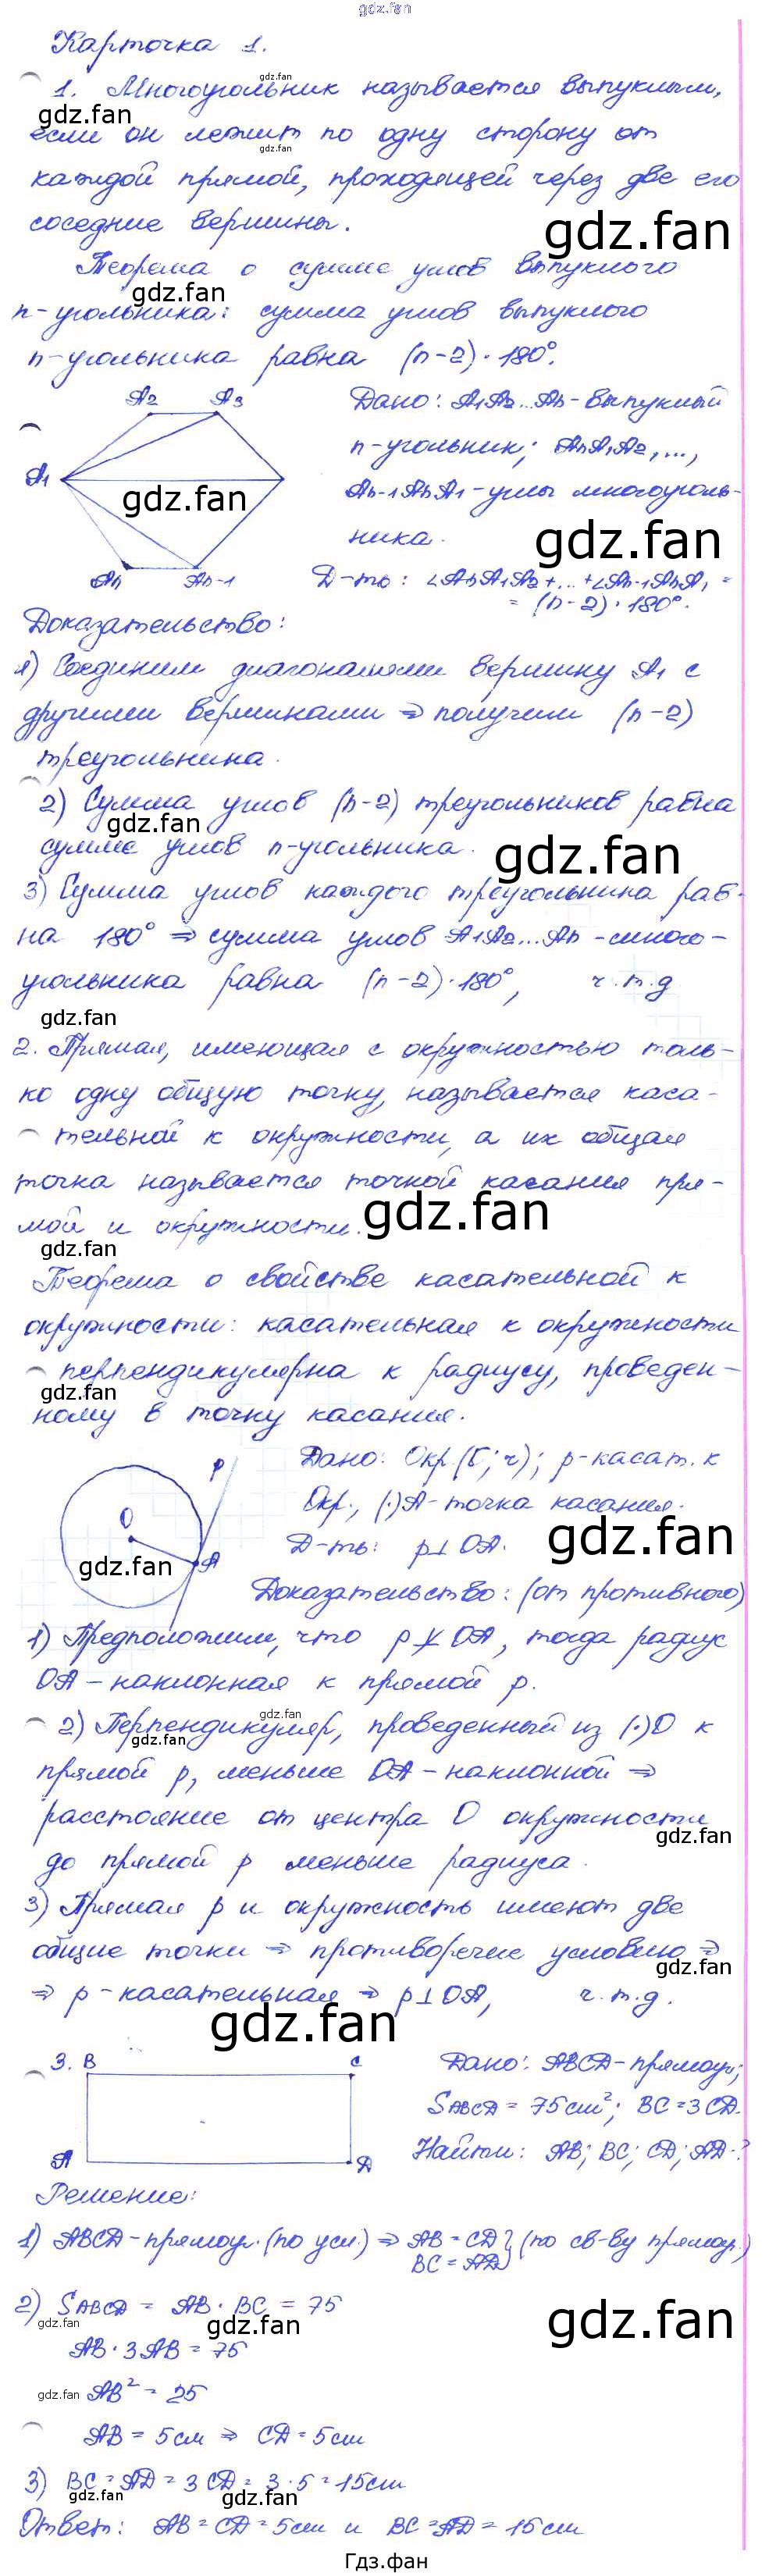 gdz.fan
Карточка 1.
gdz.fan
1. Многоугольник называется выпуклым,
gdz.fan
если он лежит по одну сторону от
gdz.fan
каждой прямой, проходящей через две его
соседние вершины.
gdz.fan
Теорема о сумме углов выпуклого
gdz.fan
n-угольника: сумма углов выпуклого
n-угольника равна (n-2)·180°.
A2 A3
A1
gdz.fan
An An-1
Дано: A1A2...An - выпуклый
n-угольник; AnA1A2, ...,
An-1AnA1 - углы многоуголь-
ника.
gdz.fan
Д-ть: ∠AnA1A2+...+∠An-1AnA1 =
= (n-2)·180°.
Доказательство:
1) Соединим диагоналями вершину A1 с
другими вершинами ⇒ получим (n-2)
треугольника.
2) Сумма углов (n-2) треугольников равна
gdz.fan
сумме углов n-угольника.
gdz.fan
3) Сумма углов каждого треугольника рав-
на 180° ⇒ сумма углов A1A2...An - много-
угольника равна (n-2)·180°, ч.т.д
gdz.fan
2. Прямая, имеющая с окружностью толь-
ко одну общую точку, называется каса-
тельной к окружности, а их общая
точка называется точкой касания пря-
мой и окружности.
gdz.fan
gdz.fan
Теорема о свойстве касательной к
окружности: касательная к окружности
перпендикулярна к радиусу, проведен-
gdz.fan
ному в точку касания.
p
O
A
gdz.fan
Дано: Окр.(O; r); p-касат. к
Окр., (·)A - точка касания.
gdz.fan
Д-ть: p⊥OA.
Доказательство: (от противного)
1) Предположим, что p⊥̸OA, тогда радиус
OA - наклонная к прямой p.
gdz.fan
2) Перпендикуляр, проведенный из (·)O к
gdz.fan
прямой p, меньше OA - наклонной ⇒
расстояние от центра O окружности
gdz.fan
до прямой p меньше радиуса.
3) Прямая p и окружность имеют две
общие точки ⇒ противоречие условию ⇒
gdz.fan
⇒ p - касательная ⇒ p⊥OA, ч.т.д.
gdz.fan
3. B C
A D
Дано: ABCD - прямоуг.;
SABCD = 75 см²; BC=3CD.
Найти: AB; BC; CD; AD-?
Решение:
1) ABCD - прямоуг. (по усл.) ⇒ AB = CD } (по св-ву прямоуг.)
BC = AD
2) SABCD = AB · BC = 75
gdz.fan
gdz.fan
gdz.fan
AB · 3AB = 75
gdz.fan
AB² = 25
AB = 5 см ⇒ CD = 5 см
3) BC = AD = 3CD = 3·5 = 15 см
gdz.fan
gdz.fan
Ответ: AB = CD = 5 см и BC = AD = 15 см
Гдз.фан